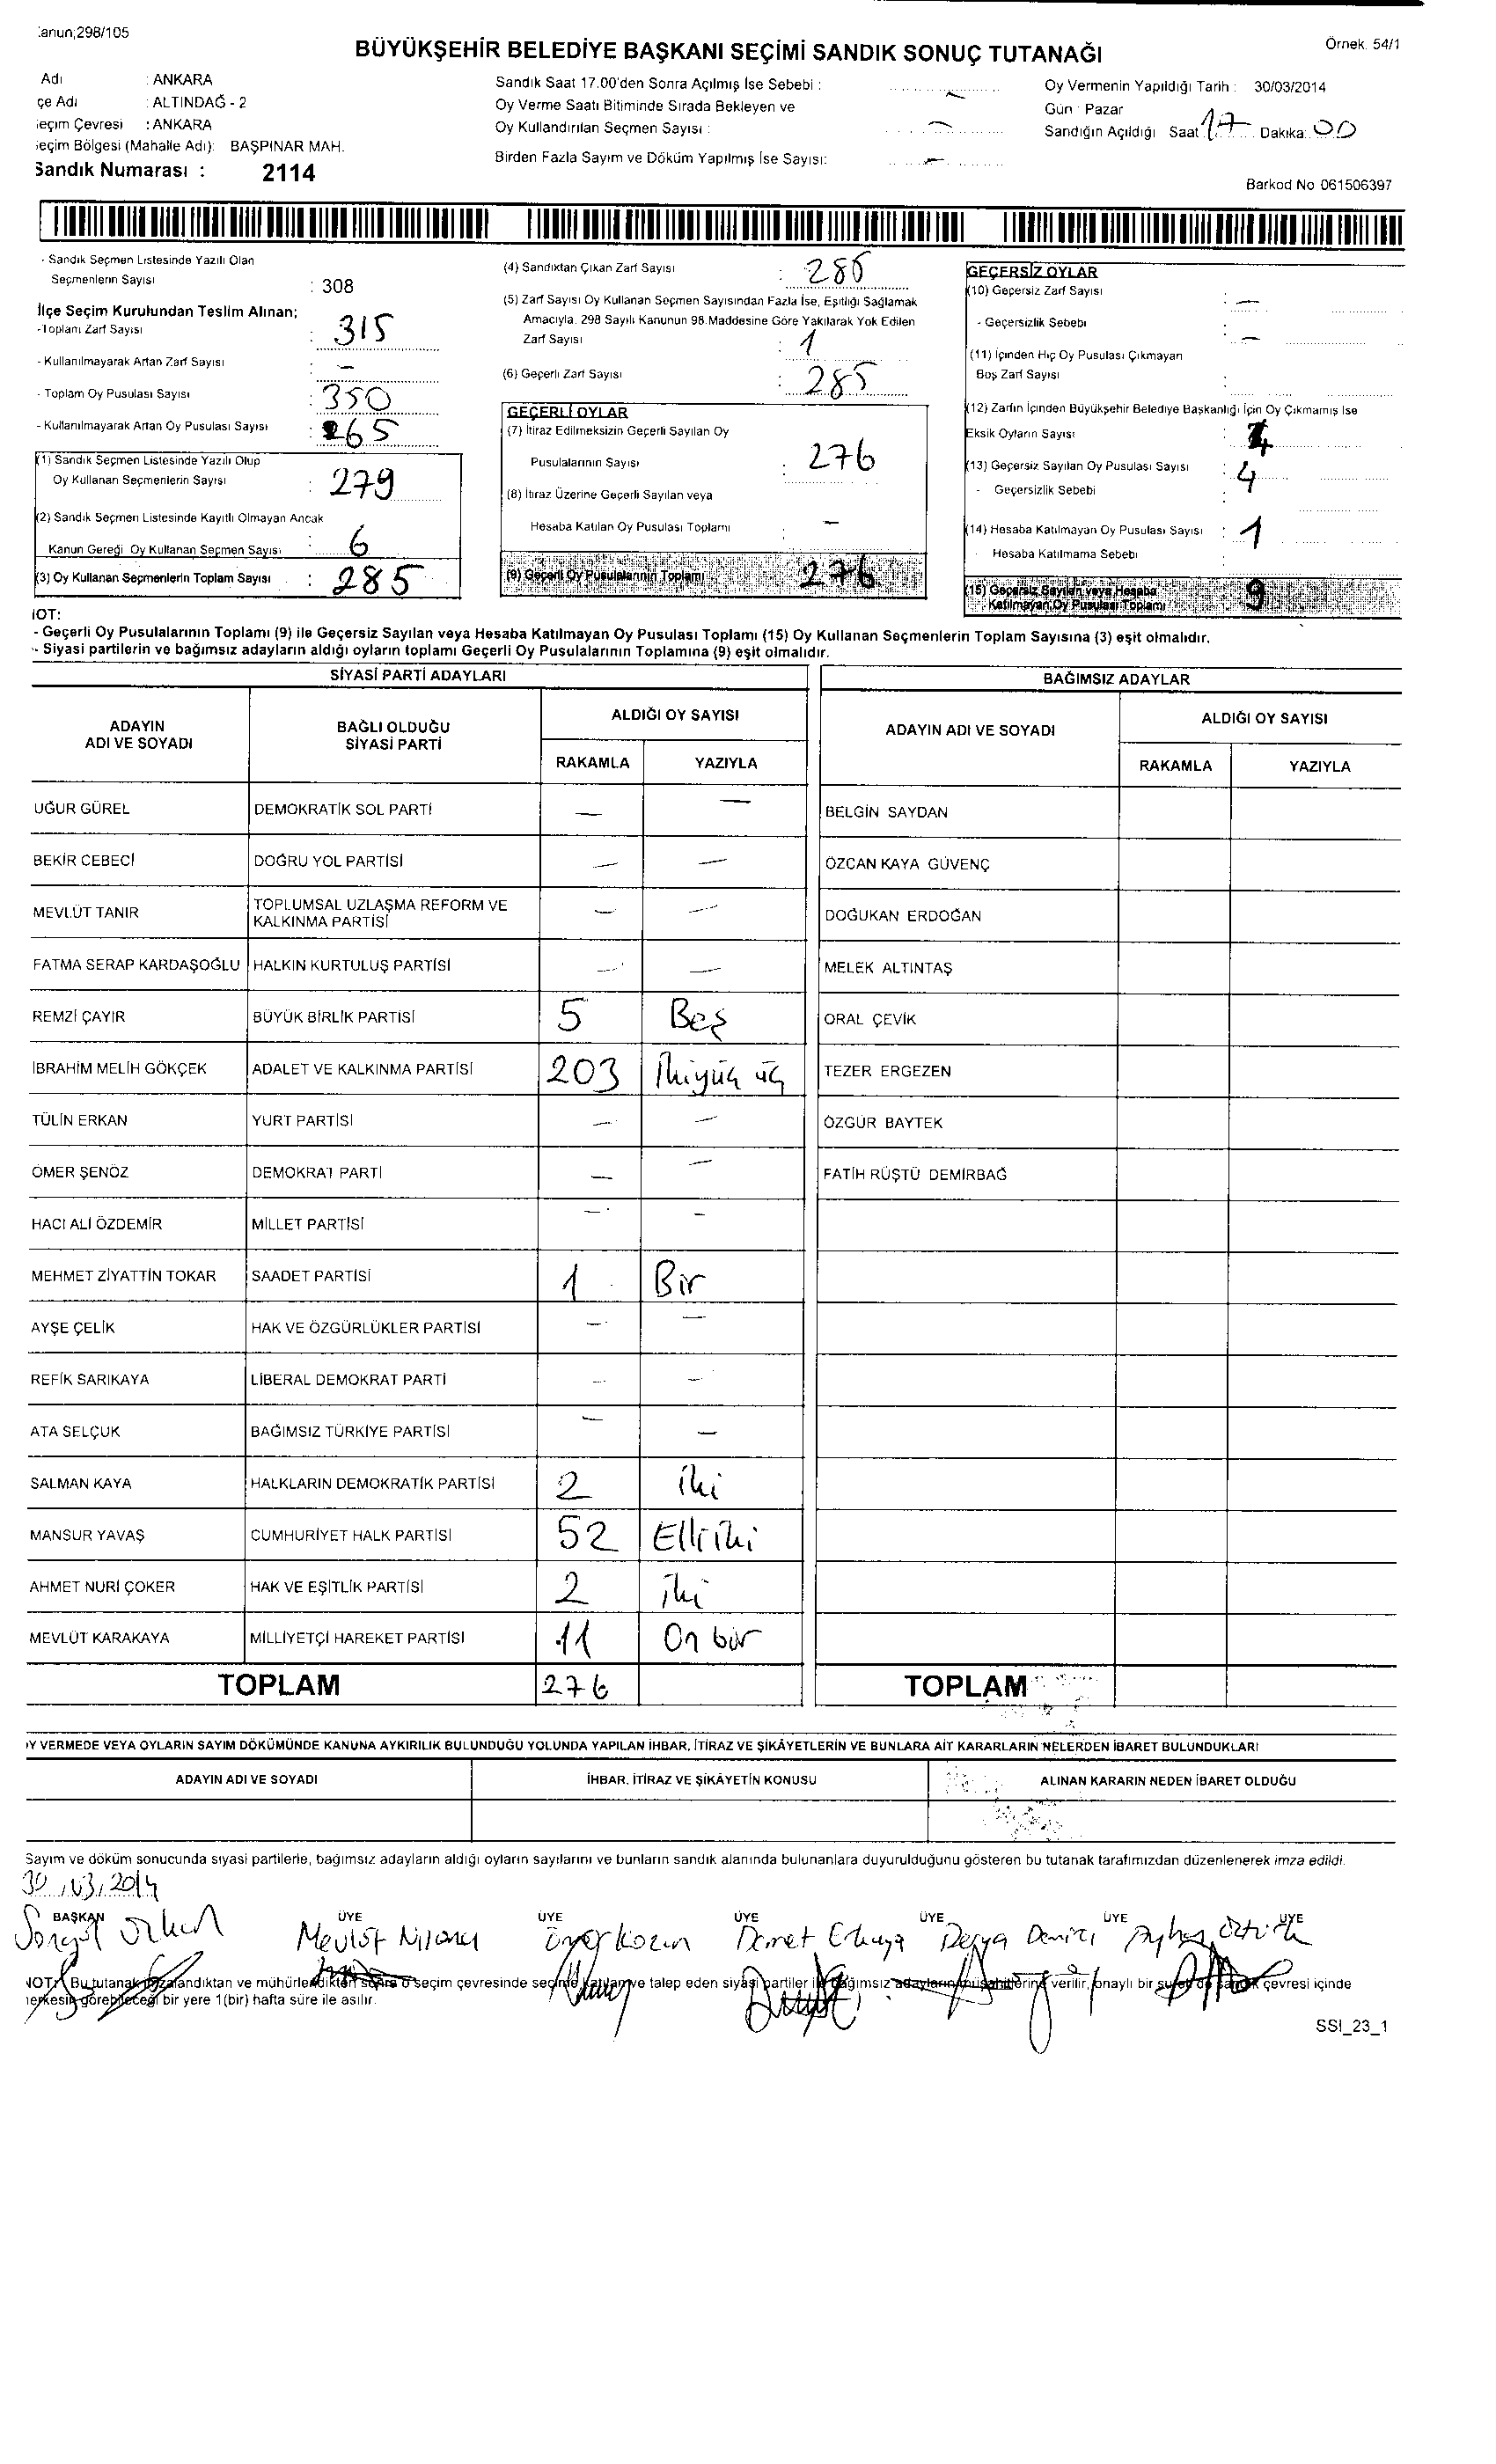 :anun;298/105
Örnek. 54/1
BÜYÜKŞEHİR BELEDİYE BAŞKANI SEÇİMİ SANDIK SONUÇ TUTANAĞI
Adı : ANKARA
çe Adı : ALTINDAĞ - 2
eçim Çevresi : ANKARA
eçim Bölgesi (Mahalle Adı): BAŞPINAR MAH.
Sandık Numarası : 2114
Sandık Saat 17.00'den Sonra Açılmış İse Sebebi : —
Oy Verme Saati Bitiminde Sırada Bekleyen ve
Oy Kullandırılan Seçmen Sayısı : —
Birden Fazla Sayım ve Döküm Yapılmış İse Sayısı: —
Oy Vermenin Yapıldığı Tarih : 30/03/2014
Gün : Pazar
Sandığın Açıldığı Saat 17 Dakika: 00
Barkod No 061506397
- Sandık Seçmen Listesinde Yazılı Olan
Seçmenlerin Sayısı : 308
İlçe Seçim Kurulundan Teslim Alınan;
-Toplam Zarf Sayısı : 315
- Kullanılmayarak Artan Zarf Sayısı : —
- Toplam Oy Pusulası Sayısı : 350
- Kullanılmayarak Artan Oy Pusulası Sayısı : 65
(1) Sandık Seçmen Listesinde Yazılı Olup
Oy Kullanan Seçmenlerin Sayısı : 279
(2) Sandık Seçmen Listesinde Kayıtlı Olmayan Ancak
Kanun Gereği Oy Kullanan Seçmen Sayısı : 6
(3) Oy Kullanan Seçmenlerin Toplam Sayısı : 285
(4) Sandıktan Çıkan Zarf Sayısı : 286
(5) Zarf Sayısı Oy Kullanan Seçmen Sayısından Fazla İse, Eşitliği Sağlamak
Amacıyla. 298 Sayılı Kanunun 98.Maddesine Göre Yakılarak Yok Edilen
Zarf Sayısı : 1
(6) Geçerli Zarf Sayısı : 285
GEÇERLİ OYLAR
(7) İtiraz Edilmeksizin Geçerli Sayılan Oy
Pusulalarının Sayısı : 276
(8) İtiraz Üzerine Geçerli Sayılan veya
Hesaba Katılan Oy Pusulası Toplamı : —
(9) Geçerli Oy Pusulalarının Toplamı : 276
GEÇERSİZ OYLAR
(10) Geçersiz Zarf Sayısı : —
- Geçersizlik Sebebi : —
(11) İçinden Hiç Oy Pusulası Çıkmayan
Boş Zarf Sayısı :
(12) Zarfın İçinden Büyükşehir Belediye Başkanlığı İçin Oy Çıkmamış İse
Eksik Oyların Sayısı : 4
(13) Geçersiz Sayılan Oy Pusulası Sayısı : 4
- Geçersizlik Sebebi :
(14) Hesaba Katılmayan Oy Pusulası Sayısı : 1
- Hesaba Katılmama Sebebi
(15) Geçersiz Sayılan veya Hesaba
Katılmayan Oy Pusulası Toplamı : 9
IOT:
- Geçerli Oy Pusulalarının Toplamı (9) ile Geçersiz Sayılan veya Hesaba Katılmayan Oy Pusulası Toplamı (15) Oy Kullanan Seçmenlerin Toplam Sayısına (3) eşit olmalıdır.
- Siyasi partilerin ve bağımsız adayların aldığı oyların toplamı Geçerli Oy Pusulalarının Toplamına (9) eşit olmalıdır.
SİYASİ PARTİ ADAYLARI
BAĞIMSIZ ADAYLAR
ADAYIN ADI VE SOYADI BAĞLI OLDUĞU SİYASİ PARTİ ALDIĞI OY SAYISI RAKAMLA YAZIYLA
ADAYIN ADI VE SOYADI ALDIĞI OY SAYISI RAKAMLA YAZIYLA
UĞUR GÜREL DEMOKRATİK SOL PARTİ — — BELGİN SAYDAN
BEKİR CEBECİ DOĞRU YOL PARTİSİ — — ÖZCAN KAYA GÜVENÇ
MEVLÜT TANIR TOPLUMSAL UZLAŞMA REFORM VE KALKINMA PARTİSİ — — DOĞUKAN ERDOĞAN
FATMA SERAP KARDAŞOĞLU HALKIN KURTULUŞ PARTİSİ — — MELEK ALTINTAŞ
REMZİ ÇAYIR BÜYÜK BİRLİK PARTİSİ 5 Beş ORAL ÇEVİK
İBRAHİM MELİH GÖKÇEK ADALET VE KALKINMA PARTİSİ 203 İkiyüz üç TEZER ERGEZEN
TÜLİN ERKAN YURT PARTİSİ — — ÖZGÜR BAYTEK
ÖMER ŞENÖZ DEMOKRAT PARTİ — — FATİH RÜŞTÜ DEMİRBAĞ
HACI ALİ ÖZDEMİR MİLLET PARTİSİ — —
MEHMET ZİYATTİN TOKAR SAADET PARTİSİ 1 Bir
AYŞE ÇELİK HAK VE ÖZGÜRLÜKLER PARTİSİ — —
REFİK SARIKAYA LİBERAL DEMOKRAT PARTİ — —
ATA SELÇUK BAĞIMSIZ TÜRKİYE PARTİSİ — —
SALMAN KAYA HALKLARIN DEMOKRATİK PARTİSİ 2 iki
MANSUR YAVAŞ CUMHURİYET HALK PARTİSİ 52 Elli iki
AHMET NURİ ÇOKER HAK VE EŞİTLİK PARTİSİ 2 iki
MEVLÜT KARAKAYA MİLLİYETÇİ HAREKET PARTİSİ 11 On bir
TOPLAM 276 TOPLAM
Y VERMEDE VEYA OYLARIN SAYIM DÖKÜMÜNDE KANUNA AYKIRILIK BULUNDUĞU YOLUNDA YAPILAN İHBAR, İTİRAZ VE ŞİKÂYETLERİN VE BUNLARA AİT KARARLARIN NELERDEN İBARET BULUNDUKLARI
ADAYIN ADI VE SOYADI İHBAR, İTİRAZ VE ŞİKÂYETİN KONUSU ALINAN KARARIN NEDEN İBARET OLDUĞU
Sayım ve döküm sonucunda siyasi partilerle, bağımsız adayların aldığı oyların sayılarını ve bunların sandık alanında bulunanlara duyurulduğunu gösteren bu tutanak tarafımızdan düzenlenerek imza edildi.
30/03/2014
BAŞKAN ÜYE ÜYE ÜYE ÜYE ÜYE ÜYE
Songül Mevlüt Demet Derya Demirci Öztürk
NOT: Bu tutanak imzalandıktan ve mühürlendikten sonra o seçim çevresinde seçime katılan ve talep eden siyasi partiler ile bağımsız adayların müşahitlerine verilir, onaylı bir sureti de sandık çevresi içinde
herkesin görebileceği bir yere 1(bir) hafta süre ile asılır.
SSI_23_1